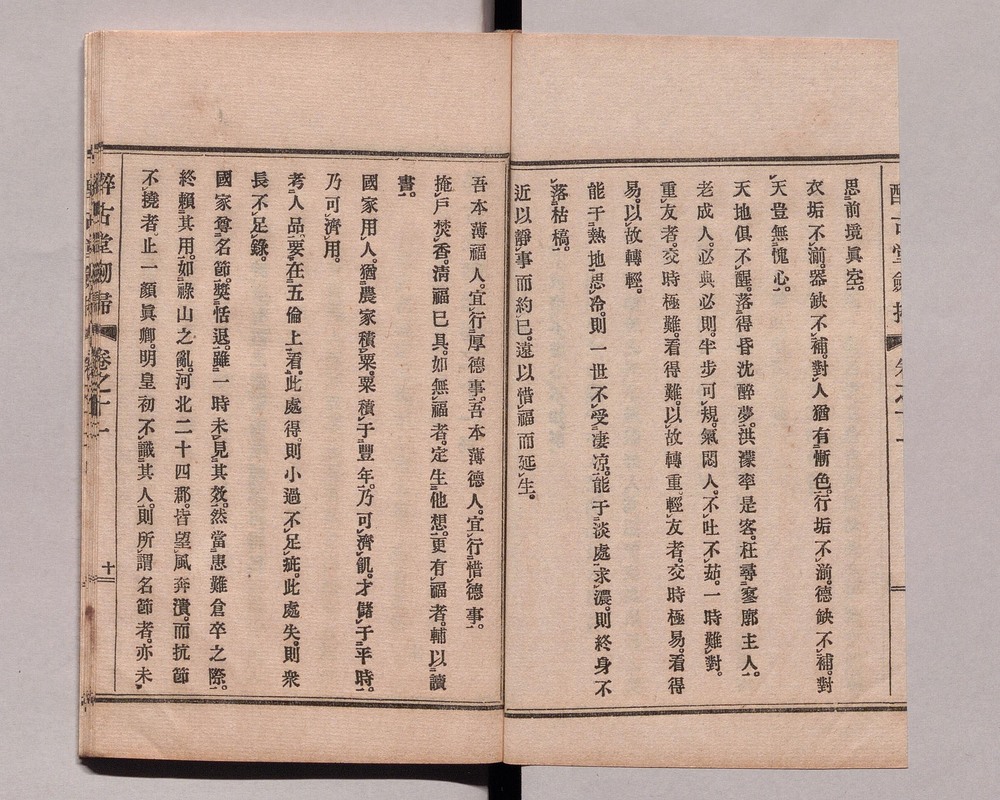 思前境眞空。
衣垢不湔。器缺不補。對人猶有慚色。行垢不湔。德缺不補。對
天豈無愧心。
天地俱不醒。落得昏沈醉夢。洪濛率是客。枉尋寥廓主人。
老成人。必典必則。半步可規。氣悶人。不吐不茹。一時難對。
重友者。交時極難。看得難。以故轉重。輕友者。交時極易。看得
易。以故轉輕。
能于熱地思冷。則一世不受凄凉。能于淡處求濃。則終身不
落枯槁。
近以靜事而約已。遠以惜福而延生。
吾本薄福人。宜行厚德事。吾本薄德人。宜行惜德事。
掩戶焚香。淸福已具。如無福者。定生他想。更有福者。輔以讀
書。
國家用人。猶農家積粟。粟積于豐年。乃可濟飢。才儲于平時。
乃可濟用。
考人品。要在五倫上看。此處得。則小過不足疵。此處失。則衆
長不足錄。
國家尊名節。奬恬退。雖一時未見其效。然當患難倉卒之際。
終賴其用。如祿山之亂。河北二十四郡。皆望風奔潰。而抗節
不撓者。止一顔眞卿。明皇初不識其人。則所謂名節者。亦未
醉古堂劒掃 卷之十一 十